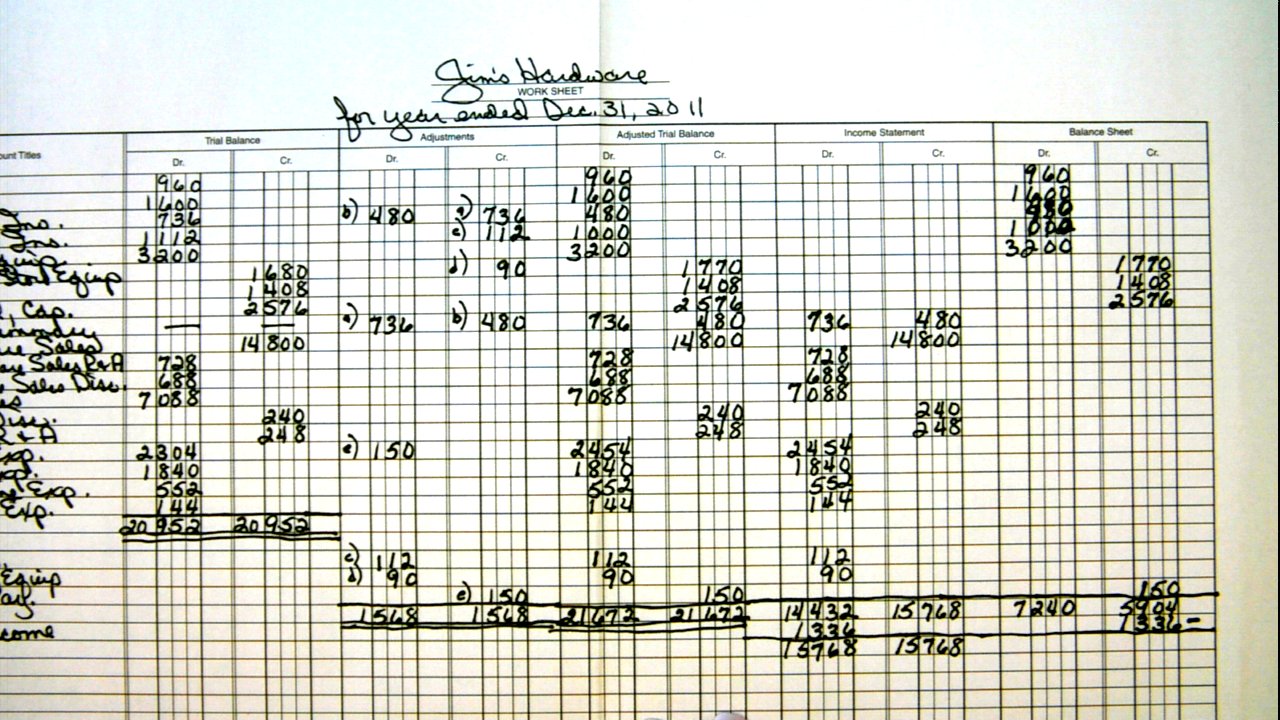 Jim's Hardware
WORK SHEET
for year ended Dec. 31, 2011
ount Titles Trial Balance Adjustments Adjusted Trial Balance Income Statement Balance Sheet
Dr. Cr. Dr. Cr. Dr. Cr. Dr. Cr. Dr. Cr.
960 960 960
1600 1600 1600
Ins. 736 b) 480 a) 736 480
Ins. 1112 c) 112 1000 1000
uip. 3200 3200 3200
Store Equip 1680 d) 90 1770 1770
1408 1408 1408
Cap. 2576 2576 2576
ummary — — a) 736 b) 480 736 480 736 480
Sales 14800 14800 14800
Sales R+A 728 728 728
Sales Disc. 688 688 688
es 7088 7088 7088
Disc. 240 240 240
R + A 248 248 248
xp. 2304 e) 150 2454 2454
xp. 1840 1840 1840
Exp. 552 552 552
Exp. 144 144 144
20952 20952
c) 112 112 112
Equip d) 90 90 90
ay. e) 150 150 150
1568 1568 21672 21672 14432 15768 7240 5904
come 1336 1336-
15768 15768